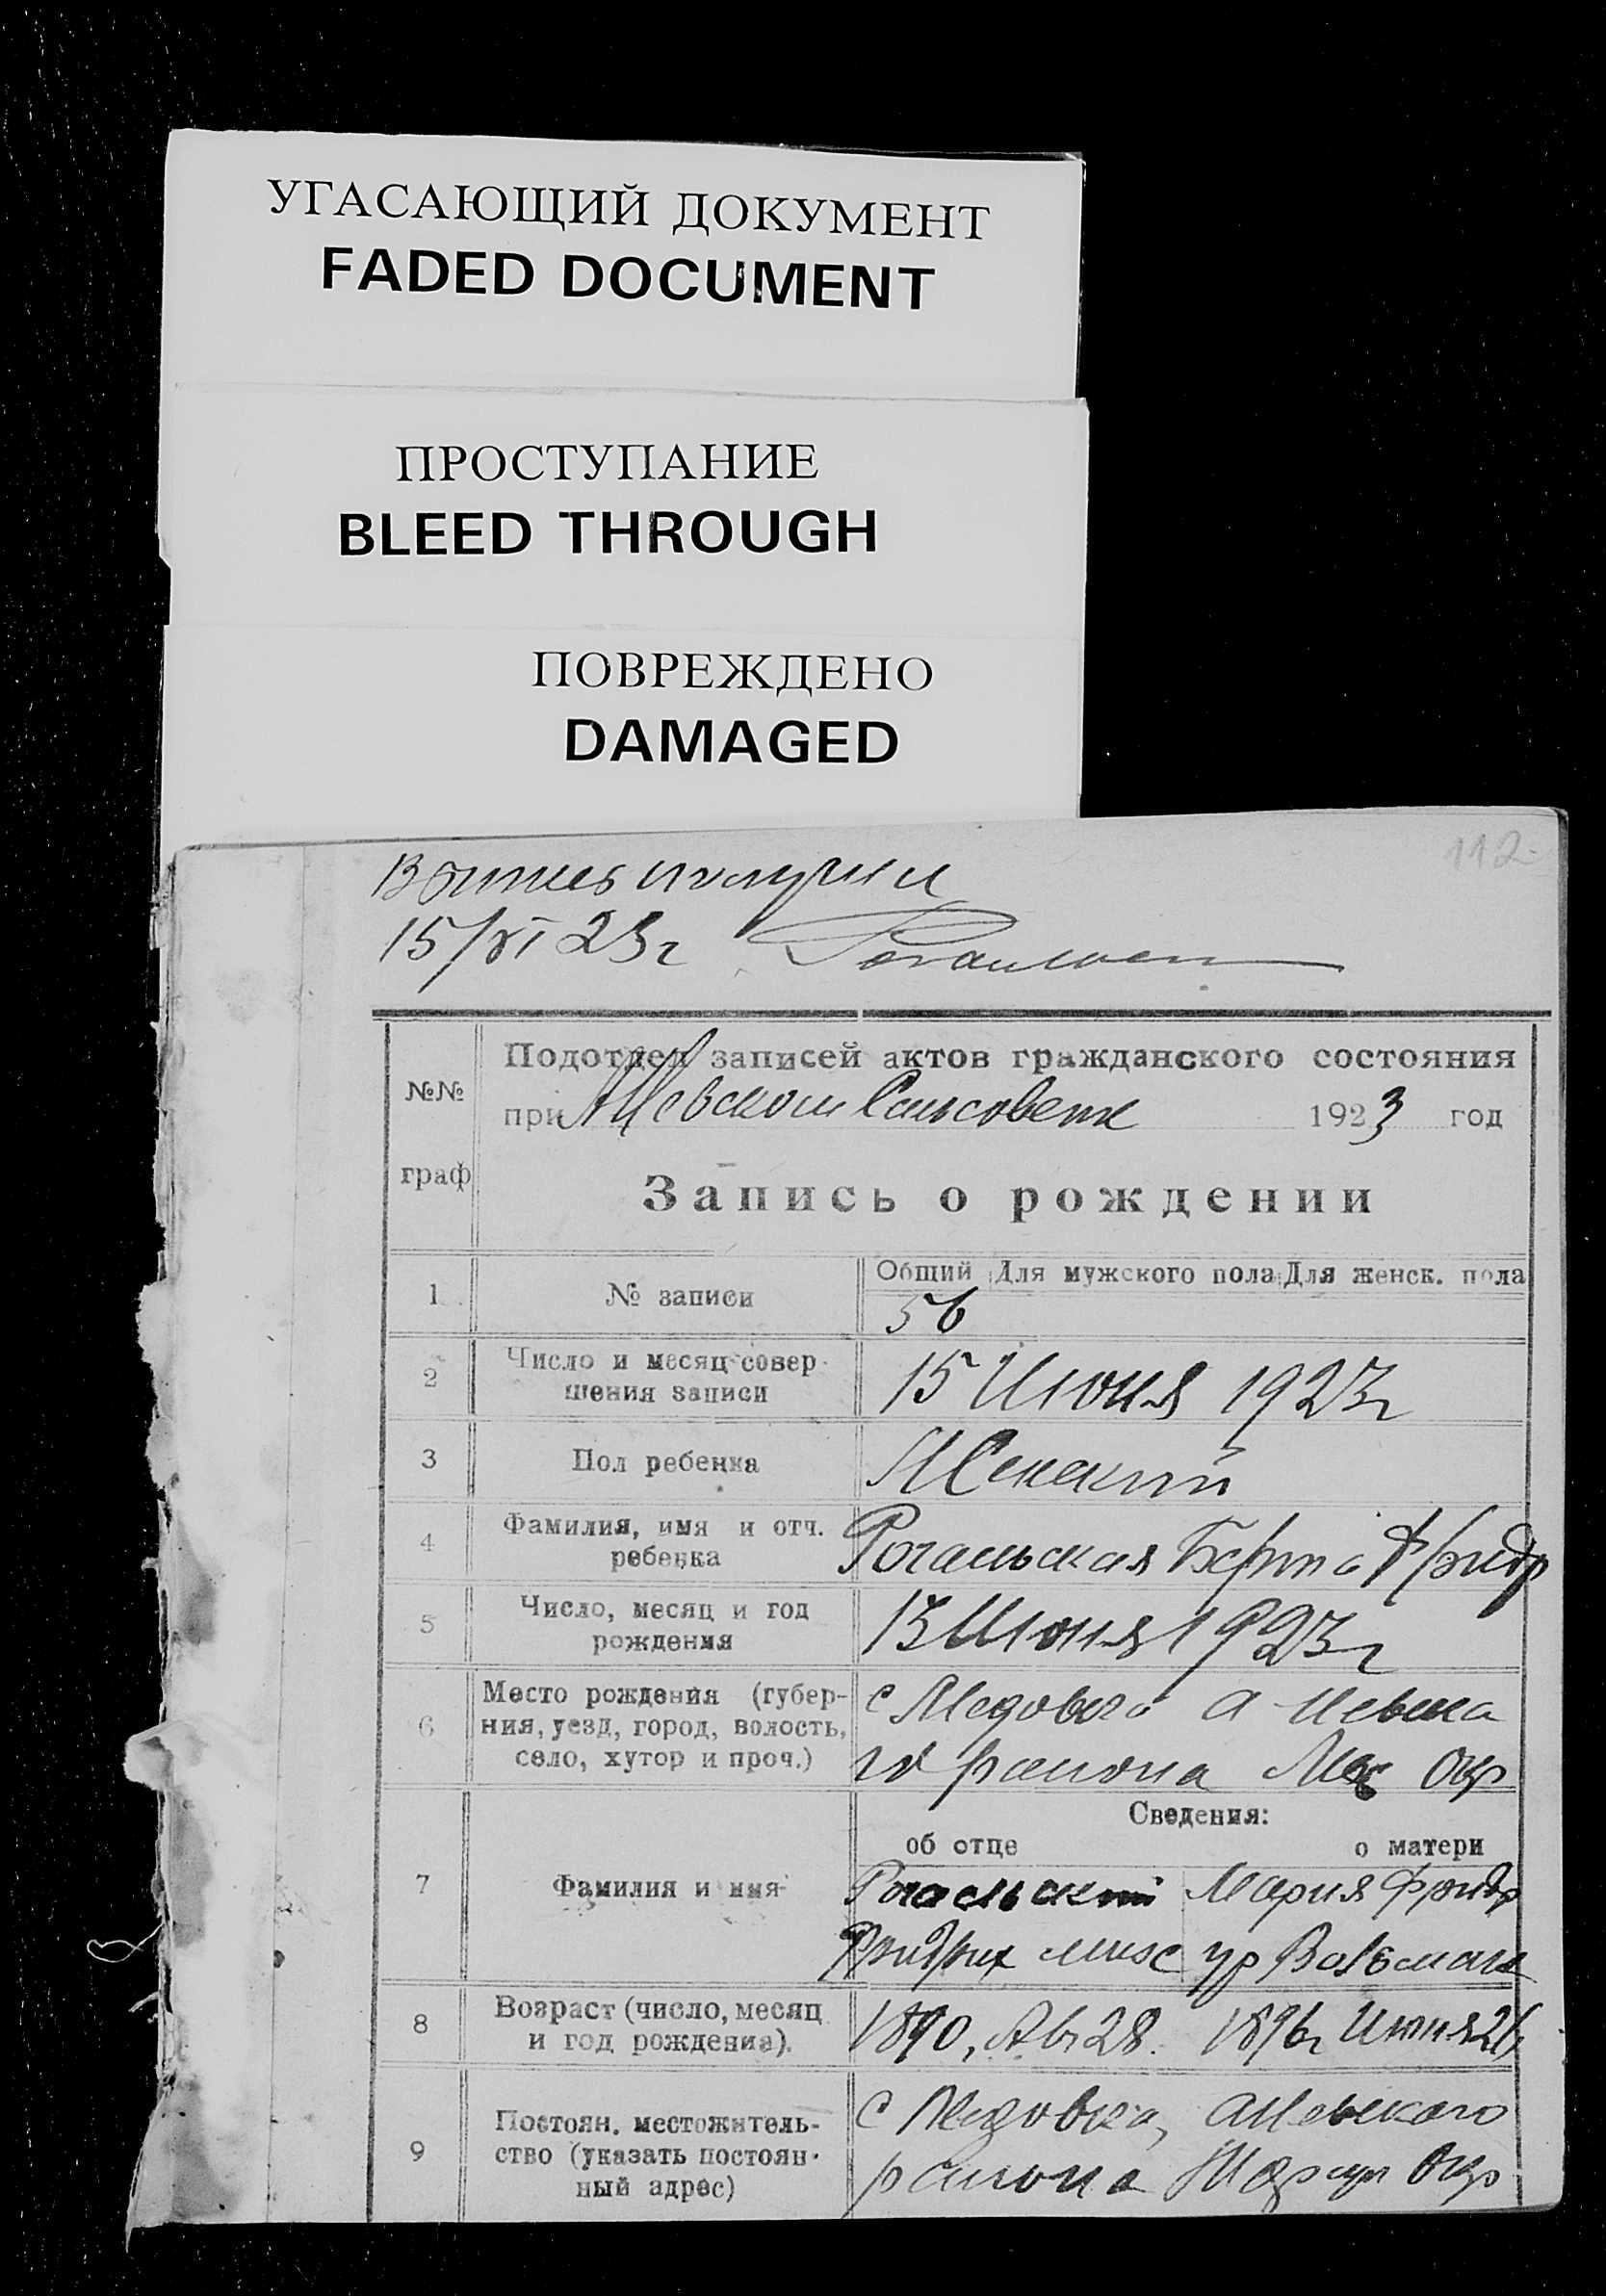 УГАСАЮЩИЙ ДОКУМЕНТ
FADED DOCUMENT
ПРОСТУПАНИЕ
BLEED THROUGH
ПОВРЕЖДЕНО
DAMAGED
112
получил
15/VI 23 г
№№ граф
Подотдел записей актов гражданского состояния
при Сельсовете 1923 год
Запись о рождении
Общий Для мужского пола Для женск. пола
1 № записи 56
2 Число и месяц совер-
шения записи 15 Июня 1923 г
3 Пол ребенка Женский
4 Фамилия, имя и отч.
ребенка Рогальская Берта Фридр
5 Число, месяц и год
рождения 13 Июня 1923 г
6 Место рождения (губер-
ния, уезд, город, волость,
село, хутор и проч.)
района Окр
Сведения:
об отце о матери
7 Фамилия и имя Рогальский Мария Фридр
Фридрих ур
8 Возраст (число, месяц
и год рождения). 1890, Авг 28. 1896 г Июня 26
9 Постоян. местожитель-
ство (указать постоян-
ный адрес)
района Окр